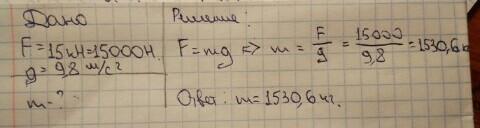 Дано
F=15кН=15000Н.
g=9,8 м/с²
m-?
Решение:
F=mg => m = F/g = 15000/9,8 = 1530,6к
Ответ: m=1530,6 кг.